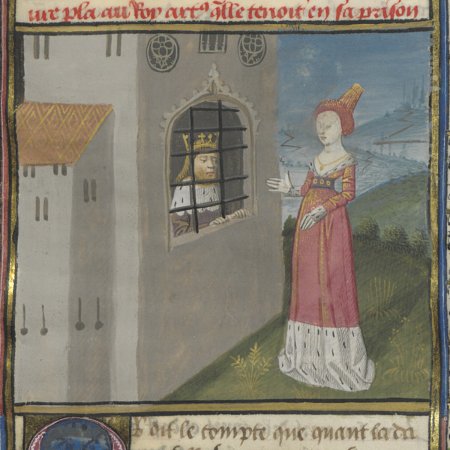 ure pla au Roy artꝰ q̃lle tenoit en sa prison
OR dit le compte que quant la da